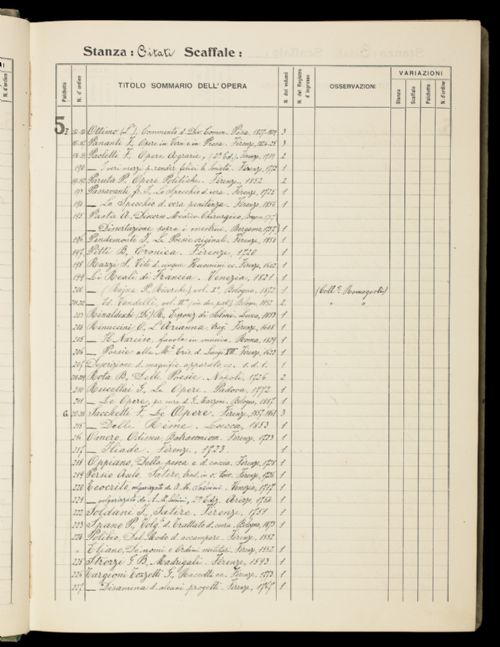 Stanza: Citati Scaffale:
VARIAZIONI
Palchetto N. d'ordine TITOLO SOMMARIO DELL'OPERA N. dei volumi N. del Registro d'ingresso OSSERVAZIONI Stanza Scaffale Palchetto N. d'ordine
5 Ottimo (L'), Commento d. Div. Comm. Pisa, 1827-1829 3
Pananti F. Opere in Versi e in Prosa. Firenze, 1824-25 3
Paoletti F. Opere Agrarie, Firenze, 1789 2
190 — I veri mezzi p. render felici le Società. Firenze, 1772 1
Paruta P. Opere Politiche. Firenze, 1852 2
193 Passavanti fr. J. Lo Specchio d. vera. Firenze, 1725 1
194 — Lo Specchio d. vera penitenza. Firenze, 1856 1
195 Pasta A. Discorso Medico-Chirurgico, 1
— Dissertazione sopra i mestrui. Bergamo, 1757 1
196 Pindemonte I. Le Poesie originali. Firenze, 1858 1
197 Pitti B. Cronica. Firenze, 1720 1
198 Razzi S. Vite d. cinque Huomini ec. Firenze, 1602 1
199 Li Reali di Francia. Venezia, 1821 1
200 — (Rajna P. Ricerche) vol. 1°. Bologna, 1872 1 (Coll.e Romagnoli)
— Ed. Vandelli, vol. II° Bologna, 1892 2 " "
203 Rinaldeschi Lucca, 1853 1
204 Rinuccini O. L'Arianna. Firenze, 1608 1
205 — Il Narciso, favola in musica, Roma, 1829 1
206 — Poesie alla M.tà Cris. d. Luigi XIII. Firenze, 1622 1
207 Descrizione d. magnific. apparato ec. s. d. t. 1
Rota B. Delle Poesie. Napoli, 1726 2
210 Rucellai G. Le Opere. Padova, 1772 1
211 — Le Opere, per cura d. G. Mazzoni. Bologna, 1887 1
6 Sacchetti F. Le Opere. Firenze, 1857-1861 3
215 — Delle Rime. Lucca, 1853 1
216 Omero, Odissea, Batracomiom. Firenze, 1723 1
217 — Iliade. Firenze, 1723. 1
218 Oppiano, Della pesca e d. caccia. Firenze, 1728 1
219 Persio Aulo, Satire, Firenze, 1726 1
220 Teocrito volgarizzato da A. M. Salvini. Venezia, 1717 1
221 — volgarizzato da A. M. Salvini, 2ª Ediz. Arezzo, 1754 1
222 Soldani J. Satire. Firenze, 1751 1
223 Spano P. Volg. d. Trattato d. cura. Bologna, 1873 1
224 Polibio, Del Modo d. accampare. Firenze, 1552 1
" Eliano, De nomi e Ordini militari. Firenze, 1552 1
225 Strozzi G. B. Madrigali. Firenze, 1593 1
226 Targioni Tozzetti G. Raccolta ec. Firenze, 1773 1
227 — Disamina d. alcuni progetti. Firenze, 1767 1